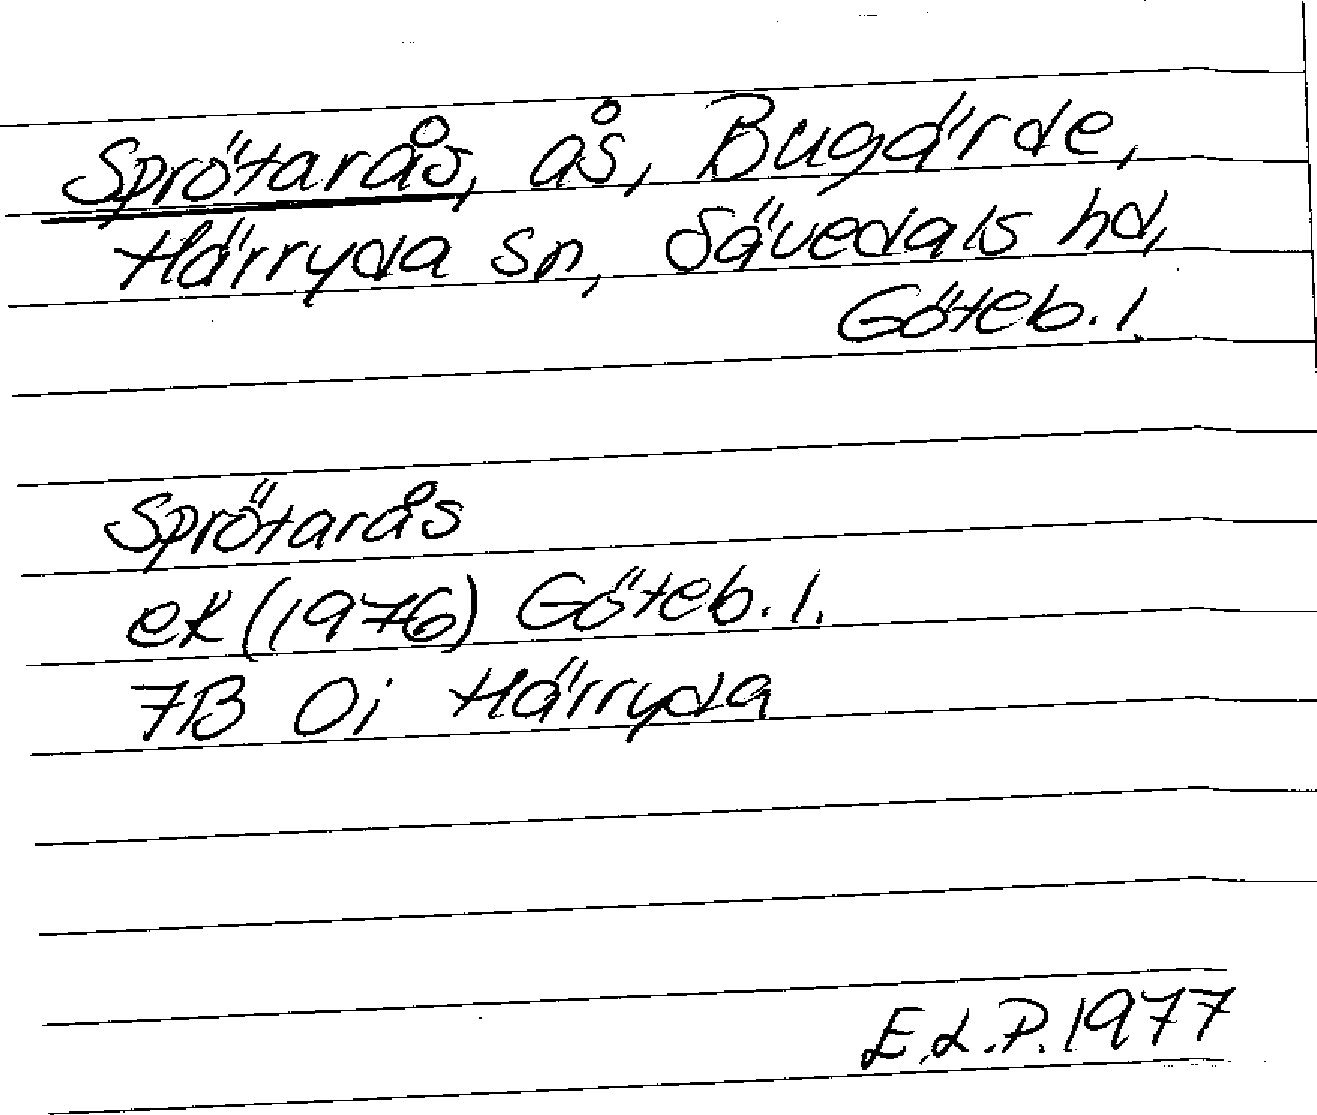 Sprötarås, ås, Bugärde,
Härryda sn, Sävedals hd,
Göteb. l.
Sprötarås
ek (1976) Göteb. l.
7B 0i Härryda
E.L.P. 1977